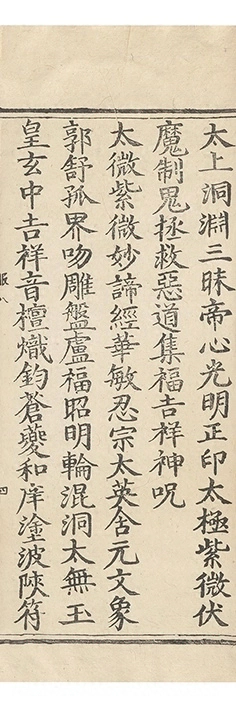 太上洞淵三昧帝心光明正印太極紫微伏
魔制鬼拯救惡道集福吉祥神呪
太微紫微妙諦經華敏忍宗太英舍元文象
郭舒孤界吻雕盤盧福昭明輪混洞太無玉
皇玄中吉祥音檀熾鈞蒼夔和庠塗波陝符
四